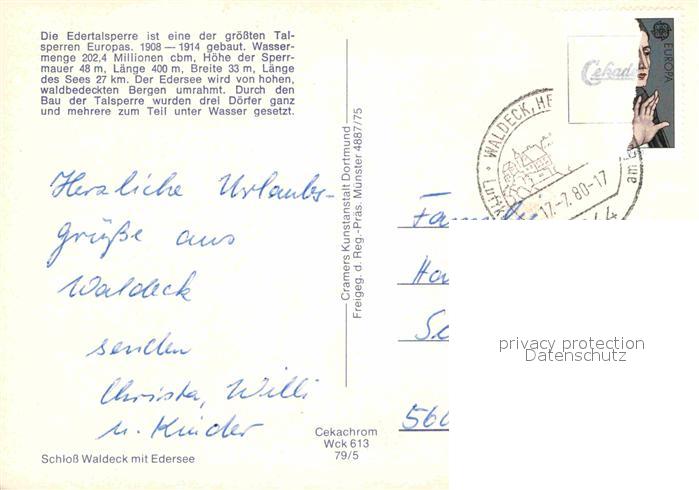 Die Edertalsperre ist eine der größten Tal-
sperren Europas. 1908—1914 gebaut. Wasser-
menge 202,4 Millionen cbm, Höhe der Sperr-
mauer 48 m, Länge 400 m, Breite 33 m, Länge
des Sees 27 km. Der Edersee wird von hohen,
waldbedeckten Bergen umrahmt. Durch den
Bau der Talsperre wurden drei Dörfer ganz
und mehrere zum Teil unter Wasser gesetzt.
Herzliche Urlaubs-
grüße aus
Waldeck
senden
Christa, Willi
u. Kinder
Schloß Waldeck mit Edersee
Cramers Kunstanstalt Dortmund
Freigeg. d. Reg.-Präs. Münster 4887/75
Cekachrom
Wck 613
79/5
EUROPA
WALDECK, HE
17.-7.80-17
am
privacy protection
Datenschutz